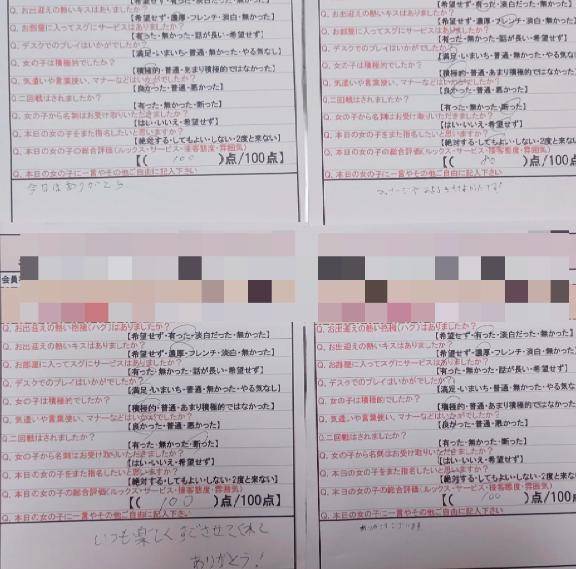 Q. お出迎えの熱いキスはありましたか?
【希望せず・濃厚・フレンチ・淡白・無かった】
Q. お部屋に入ってスグにサービスはありましたか?
【有った・無かった・話が長い・希望せず】
Q. デスクでのプレイはいかがでしたか?
【満足・いまいち・普通・無かった・やる気なし】
Q. 女の子は積極的でしたか?
【積極的・普通・あまり積極的ではなかった】
Q. 気遣いや言葉使い、マナーなどはいかがでしたか?
【良かった・普通・悪かった】
Q. 二回戦はされましたか?
【有った・無かった・断った】
Q. 女の子から名刺はお受け取りいただきましたか?
【はい・いいえ・希望せず】
Q. 本日の女の子をまた指名したいと思いますか?
【絶対する・してもよい・しない・2度と来ない】
Q. 本日の女の子の総合評価(ルックス・サービス・接客態度・雰囲気)
【( 100 )点/100点】
Q. 本日の女の子に一言やその他ご自由に記入下さい
今日はありがとう
【希望せず・濃厚・フレンチ・淡白・無かった】
Q. お部屋に入ってスグにサービスはありましたか?
【有った・無かった・話が長い・希望せず】
Q. デスクでのプレイはいかがでしたか?
【満足・いまいち・普通・無かった・やる気なし】
Q. 女の子は積極的でしたか?
【積極的・普通・あまり積極的ではなかった】
Q. 気遣いや言葉使い、マナーなどはいかがでしたか?
【良かった・普通・悪かった】
Q. 二回戦はされましたか?
【有った・無かった・断った】
Q. 女の子から名刺はお受け取りいただきましたか?
【はい・いいえ・希望せず】
Q. 本日の女の子をまた指名したいと思いますか?
【絶対する・してもよい・しない・2度と来ない
Q. 本日の女の子の総合評価(ルックス・サービス・接客態度・雰囲気)
【( 80 )点/100点】
Q. 本日の女の子に一言やその他ご自由に記入下さい
会員
Q. お出迎えの熱い抱擁(ハグ)はありましたか?
【希望せず・有った・淡白だった・無かった】
Q. お出迎えの熱いキスはありましたか?
【希望せず・濃厚・フレンチ・淡白・無かった】
Q. お部屋に入ってスグにサービスはありましたか?
【有った・無かった・話が長い・希望せず】
Q. デスクでのプレイはいかがでしたか?
【満足・いまいち・普通・無かった・やる気なし】
Q. 女の子は積極的でしたか?
【積極的・普通・あまり積極的ではなかった】
Q. 気遣いや言葉使い、マナーなどはいかがでしたか?
【良かった・普通・悪かった】
Q. 二回戦はされましたか?
【有った・無かった・断った】
Q. 女の子から名刺はお受け取りいただきましたか?
【はい・いいえ・希望せず】
Q. 本日の女の子をまた指名したいと思いますか?
【絶対する・してもよい・しない・2度と来ない】
Q. 本日の女の子の総合評価(ルックス・サービス・接客態度・雰囲気)
【( 100 )点/100点】
Q. 本日の女の子に一言やその他ご自由に記入下さい
いつも楽しくすごさせてくれて
ありがとう!
Q. お出迎えの熱い抱擁(ハグ)はありましたか?
【希望せず・有った・淡白だった・無かった】
Q. お出迎えの熱いキスはありましたか?
【希望せず・濃厚・フレンチ・淡白・無かった】
Q. お部屋に入ってスグにサービスはありましたか?
【有った・無かった・話が長い・希望せず】
Q. デスクでのプレイはいかがでしたか?
【満足・いまいち・普通・無かった・やる気なし】
Q. 女の子は積極的でしたか?
【積極的・普通・あまり積極的ではなかった】
Q. 気遣いや言葉使い、マナーなどはいかがでしたか?
【良かった・普通・悪かった】
Q. 二回戦はされましたか?
【有った・無かった・断った】
Q. 女の子から名刺はお受け取りいただきましたか?
【はい・いいえ・希望せず】
Q. 本日の女の子をまた指名したいと思いますか?
【絶対する・してもよい・しない・2度と来な
Q. 本日の女の子の総合評価(ルックス・サービス・接客態度・雰囲気)
【( 100 )点/100点】
Q. 本日の女の子に一言やその他ご自由に記入下さい
ありがとうございます